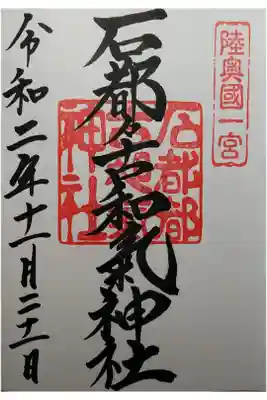 陸奥國一宮
石都々古和氣神社
石都都
古和氣
神社
令和二年十一月二十一日